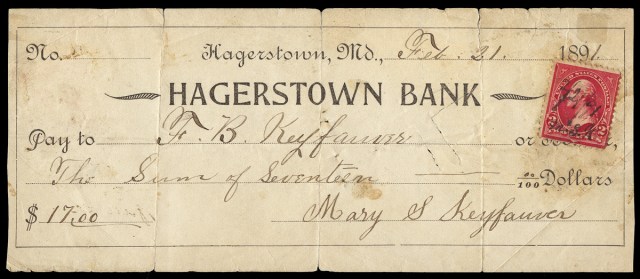 No. Hagerstown, Md., Feb. 21. 1891
HAGERSTOWN BANK
Pay to F. B. Keyfauver or
The Sum of Seventeen 00/100 Dollars
$ 17.00 Mary S Keyfauver